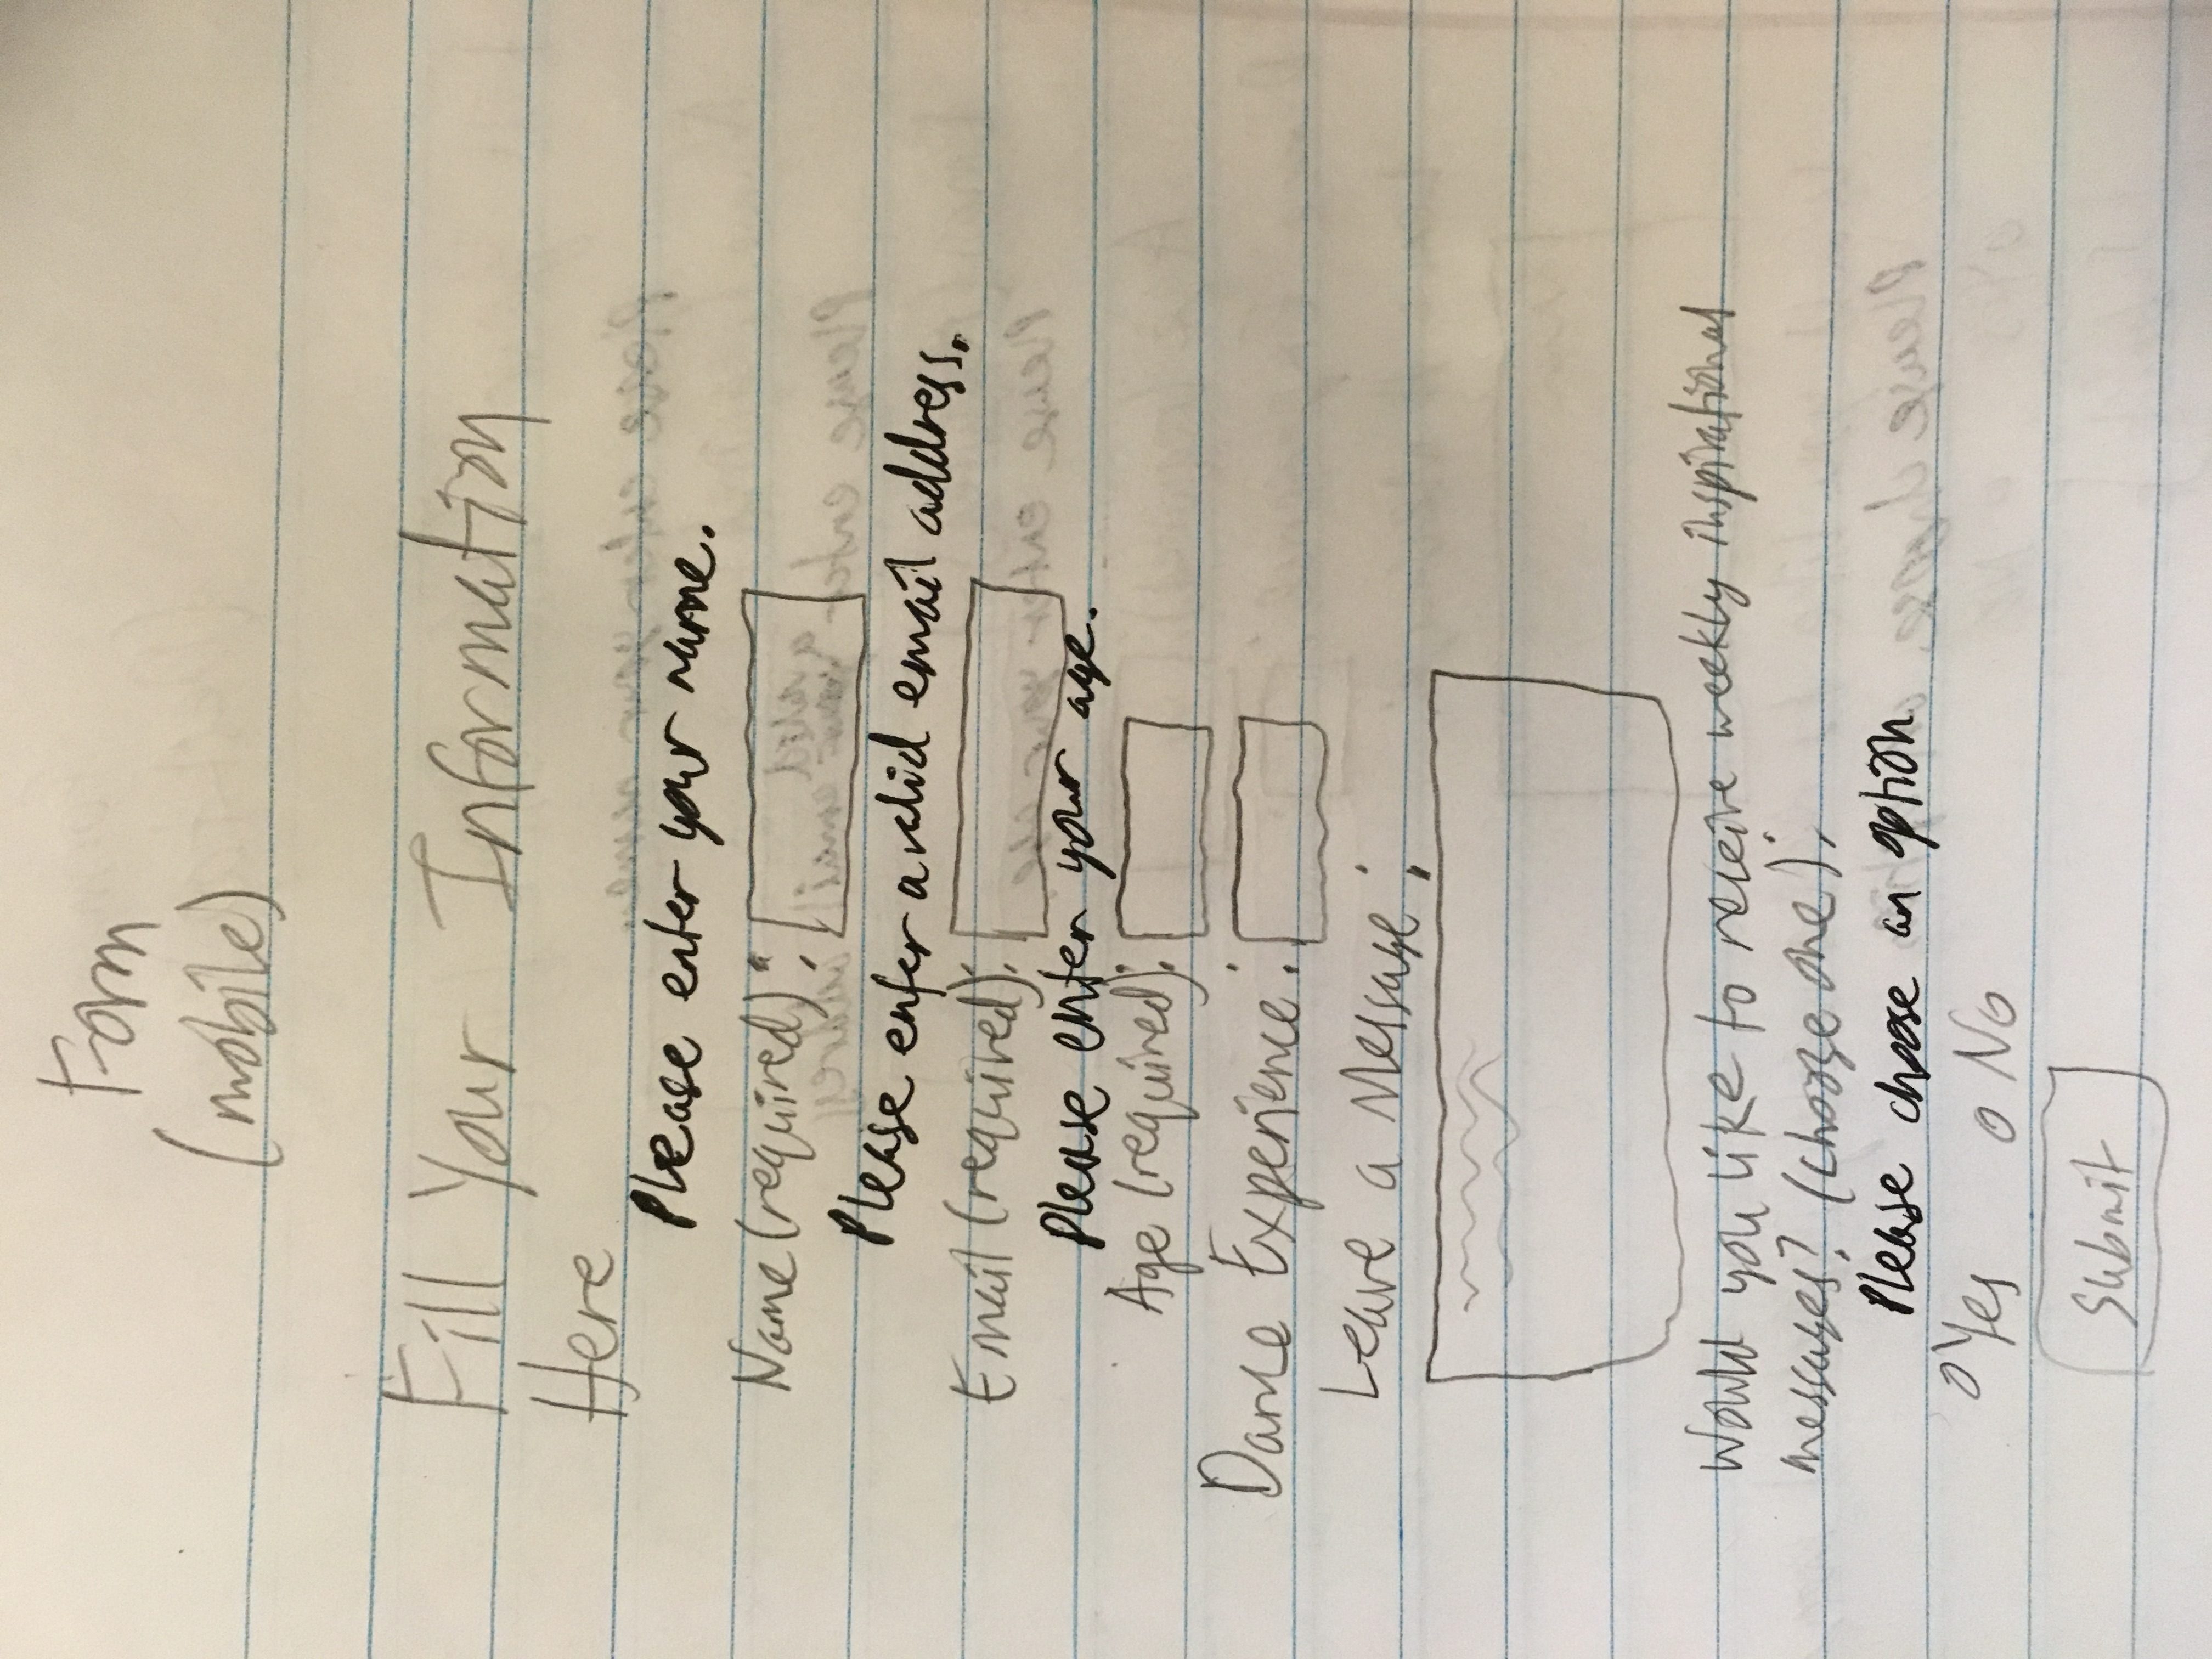 Form
(mobile)
Fill Your Information
Here
Please enter your name.
Name (required):
Please enter a valid email address.
Email (required):
Please enter your age.
Age (required):
Dance Experience:
Leave a Message:
Would you like to receive weekly inspirational
messages? (choose one):
Please choose an option
Yes No
Submit